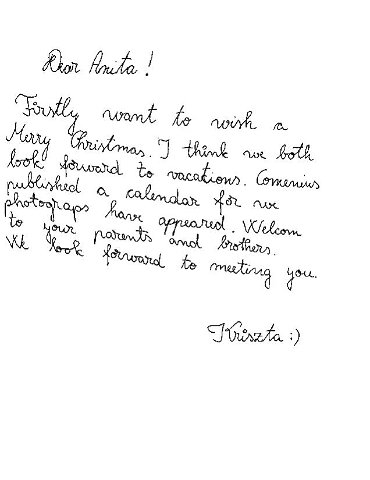 Dear Anita!
Firstly want to wish a
Merry Christmas. I think we both
look forward to vacations. Comenius
published a calendar for we
photograps have appeared. Welcom
to your parents and brothers.
We look forward to meeting you.
Kriszta :)